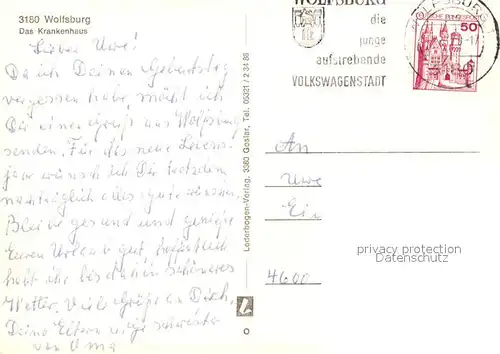 3180 Wolfsburg
Das Krankenhaus
Lieber Uwe!
Da ich Deinen Geburtstag
vergessen habe, möcht ich
Dir einen Gruß aus Wolfsburg
senden. Für das neue Lebens-
jahr wünsch ich Dir trotzdem
nachträglich alles gute
Bleibe gesund und genieße
Euren Urlaub gut, hoffentlich
habt ihr bis dahin schöneres
Wetter. Viele Grüße an Dich,
Deine Eltern
von Oma
Lederbogen-Verlag, 3380 Goslar, Tel. 05321 / 2 34 88
WOLFSBURG
die
junge
aufstrebende
VOLKSWAGENSTADT
WOLFSBURG
50
An
Uwe
Ein
4600
privacy protection
Datenschutz